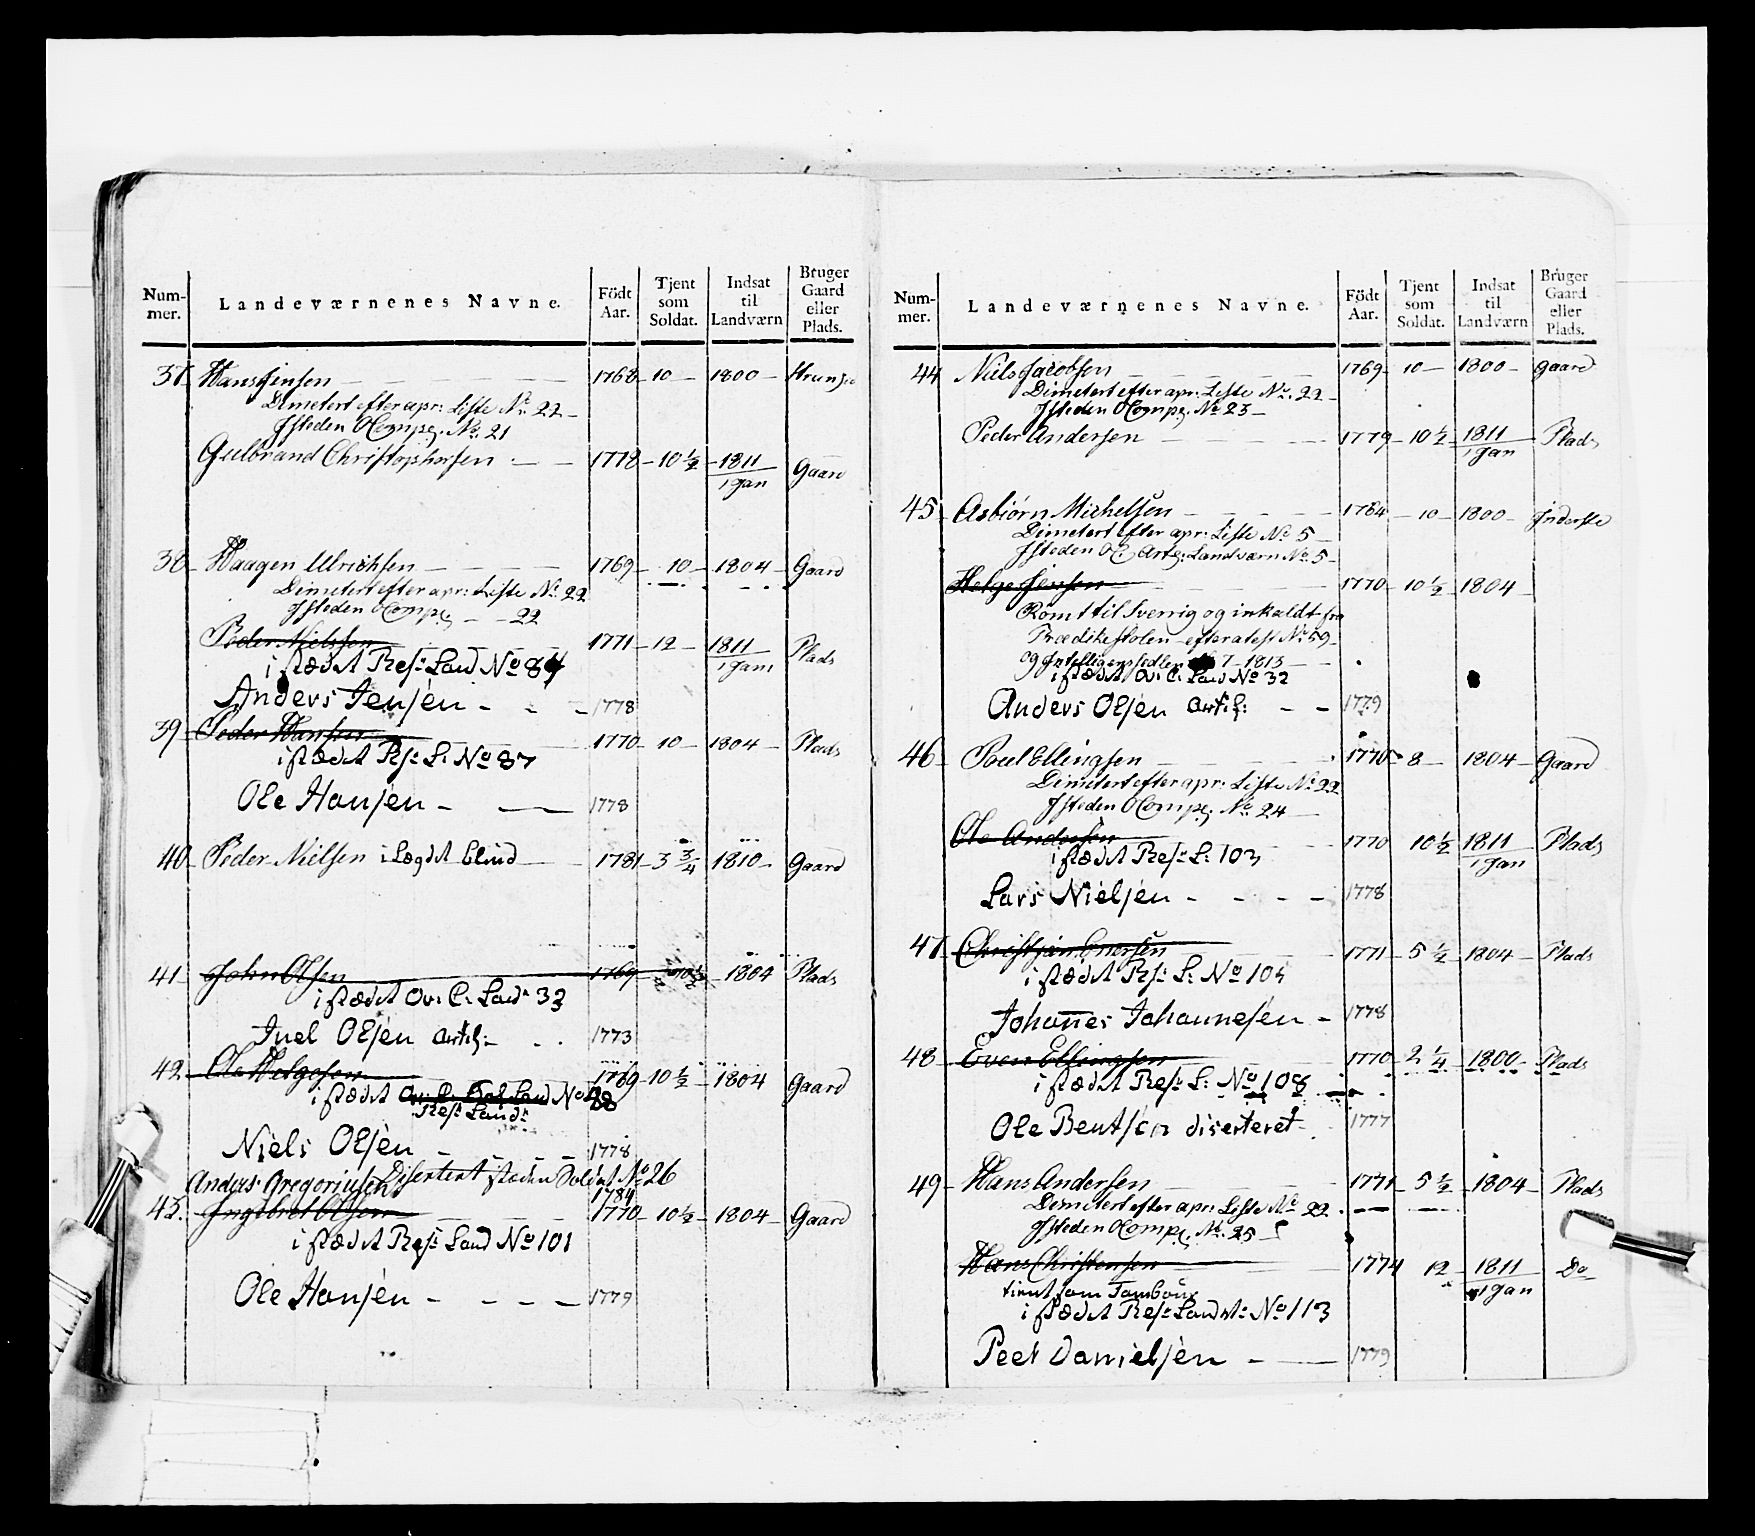 Num-
mer.
Landeværnenes Navne.
Födt
Aar.
Tjent
som
Soldat.
Indsat
til
Landværn
Bruger
Gaard
eller
Plads.
37 Hans Jensen 1768 10 1800
Dimetert efter apr: Liste No. 22
Isteden O Comp: No. 21
Gulbrand Christophersen 1778 10 1/2 1811 Gaard
1 Jan
38 Haagen Ulrichsen 1769 10 1804 Gaard
Dimetert efter apr: Liste No. 22
Isteden O Comp: 22
Peder Nielsen 1771 12 1811 Plads
1 Jan
i stædet Ress: Land No 84
Anders Jensen 1778
39 Peder Hansen 1770 10 1804 Plads
i stædet Ress: L: No 87
Ole Hansen 1778
40 Peder Nielsen i Lægdet blind 1781 3 3/4 1810 Gaard
41 John Olsen 1769 10 1/2 1804 Plads
i stædet Ov: C: Land: 33
Juel Olsen Artil: 1773
42 Ole Helgesen 1769 10 1/2 1804 Gaard
i stædet No 88
Ress: Land:
Niels Olsen 1778
Anders Gregoriusen Disertert isteden Soldat No 26
1784
43. Ingebret Olsen 1770 10 1/2 1804 Gaard
i stædet Ress: Land No 101
Ole Hansen 1779
Num-
mer.
Landeværnenes Navne.
Födt
Aar.
Tjent
som
Soldat.
Indsat
til
Landværn
Bruger
Gaard
eller
Plads.
44 Niels Jacobsen 1769 10 1800 Gaard
Dimetert efter apr: Liste No. 22
Isteden O Comp: No 23
Peder Andersen 1779 10 1/2 1811 Plads
1 Jan
45 Asbiørn Michelsen 1764 10 1800 Inderste
Dimetert efter apr: Liste No 5
Isteden OC Artg: Landværn No 5
Helge Jensen 1770 10 1/2 1804
Römt til Sverrig og inkaldt fra
Prædikestolen efter atest No 59
og Intelligenssedler 7 1813
i stædet Ov: C: Land No 32
Anders Olsen Artil: 1779
46 Poul Ellingsen 1770 8 1804 Gaard
Dimetert efter apr: Liste No 22
Isteden O Comp: No 24
Ole Andersen 1770 10 1/2 1811 Plads
1 Jan
i stædet Ress: L: 103
Lars Nielsen 1778
47 Christian Enersen 1771 5 1/2 1804 Plads
i stædet Ress: L: No 105
Johannes Johannesen 1778
48 Even Ellingsen 1770 2 1/4 1800 Plads
i stædet Ress: L: No 108
Ole Bentsen diserteret 1777
49 Hans Andersen 1771 5 1/2 1804 Plads
Dimetert efter apr: Liste No 22
Isteden O Comp: No. 25
Hans Christensen 1774 12 1811 Do
1 Jan
tient som Tambour
i stædet Ress: Landv: No 113
Peer Danielsen 1779